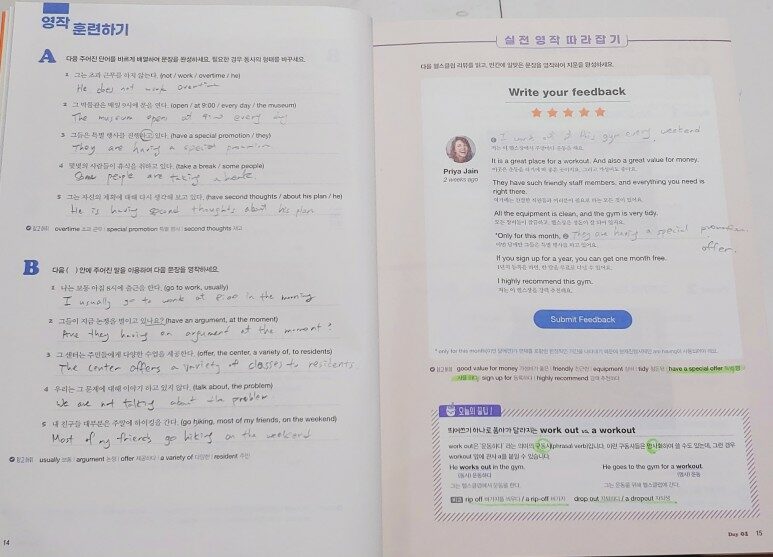 영작 훈련하기
A 다음 주어진 단어를 바르게 배열하여 문장을 완성하세요. 필요한 경우 동사의 형태를 바꾸세요.
1 그는 초과 근무를 하지 않는다. (not / work / overtime / he)
He does not work overtime
2 그 박물관은 매일 9시에 문을 연다. (open / at 9:00 / every day / the museum)
The museum opens at 9:00 every day
3 그들은 특별 행사를 진행하고 있다. (have a special promotion / they)
They are having a special promotion
4 몇몇의 사람들이 휴식을 취하고 있다. (take a break / some people)
Some people are taking a break
5 그는 자신의 계획에 대해 다시 생각해 보고 있다. (have second thoughts / about his plan / he)
He is having second thoughts about his plan
참고어휘 overtime 초과 근무 | special promotion 특별 행사 | second thoughts 재고
B 다음 ( ) 안에 주어진 말을 이용하여 다음 문장을 영작하세요.
1 나는 보통 아침 8시에 출근을 한다. (go to work, usually)
I usually go to work at 8:00 in the morning
2 그들이 지금 논쟁을 벌이고 있나요? (have an argument, at the moment)
Are they having an argument at the moment?
3 그 센터는 주민들에게 다양한 수업을 제공한다. (offer, the center, a variety of, to residents)
The center offers a variety of classes to residents
4 우리는 그 문제에 대해 이야기 하고 있지 않다. (talk about, the problem)
We are not talking about the problem
5 내 친구들 대부분은 주말에 하이킹을 간다. (go hiking, most of my friends, on the weekend)
Most of my friends go hiking on the weekend
참고어휘 usually 보통 | argument 논쟁 | offer 제공하다 | a variety of 다양한 | resident 주민
14
실전 영작 따라잡기
다음 헬스클럽 리뷰를 읽고, 빈칸에 알맞은 문장을 영작하여 지문을 완성하세요.
Write your feedback
Priya Jain
2 weeks ago
I work out at this gym every weekend
저는 이 헬스장에서 주말마다 운동을 해요.
It is a great place for a workout. And also a great value for money.
They have such friendly staff members, and everything you need is right there.
All the equipment is clean, and the gym is very tidy.
*Only for this month, They are having a special promotion.
offer.
이번 달에만 그들은 특별 행사를 하고 있어요.
If you sign up for a year, you can get one month free.
I highly recommend this gym.
저는 이 헬스장을 강력 추천해요.
Submit Feedback
참고어휘 good value for money 가성비가 좋은 | friendly 친근한 | equipment 장비 | tidy 잘 정돈된 | have a special offer 특별 행사를 하다 | sign up for 등록하다 | highly recommend 강력 추천하다
오늘의 꿀팁!
띄어쓰기 하나로 품사가 달라지는 work out vs. a workout
work out은 '운동하다' 라는 의미의 구동사(phrasal verb)입니다. 이런 구동사들은 명사화하여 쓸 수도 있는데, 그런 경우 workout 앞에 관사 a를 붙일 수 있습니다.
He works out in the gym.
(동사) 운동하다
그는 헬스클럽에서 운동을 한다.
He goes to the gym for a workout.
(명사) 운동
그는 운동을 위해 헬스클럽에 간다.
비교 rip off 바가지를 씌우다 / a rip-off 바가지 drop out 자퇴하다 / a dropout 자퇴생
Day 01 15